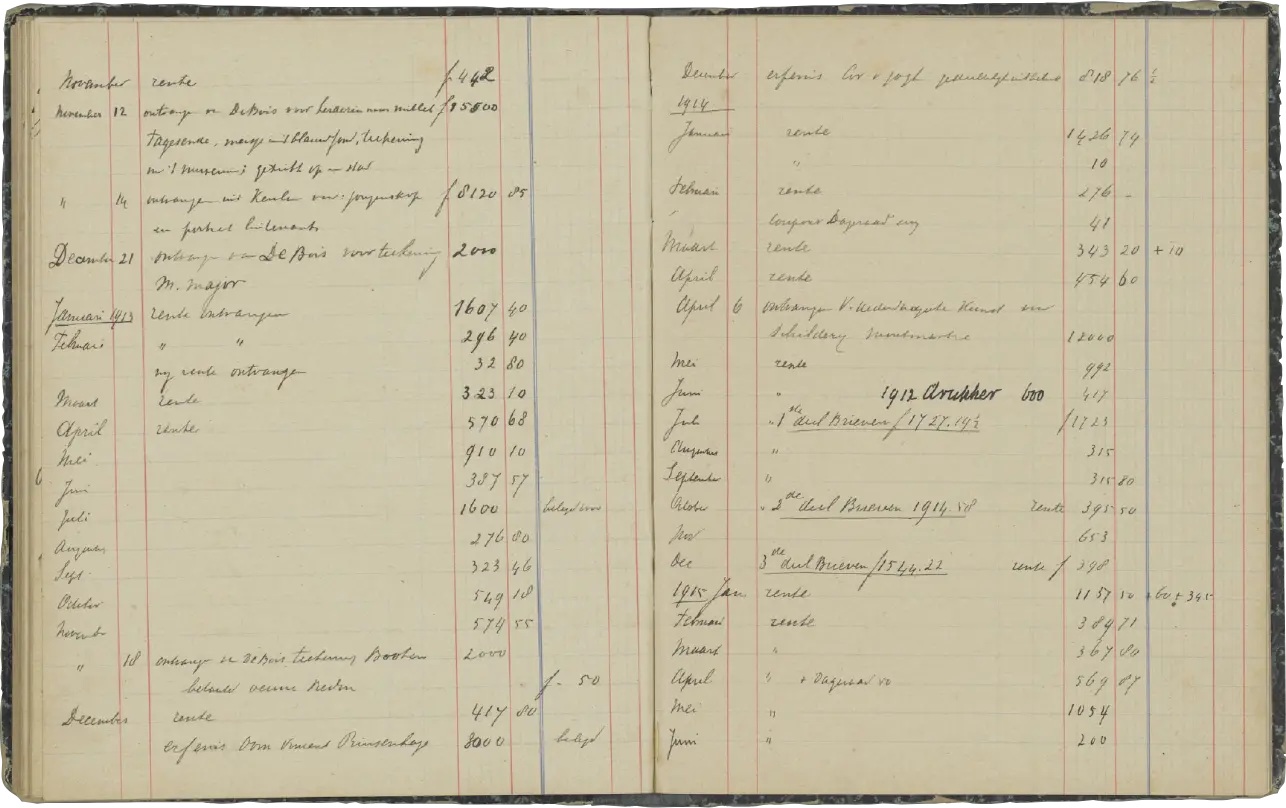 November rente f 442
November 12 ontvangen v. De Bois voor herderin naar millet f 15000
tagesende, meisje met blauw fond, teekening
in 't museum; gekocht op een
" 14 ontvangen uit Keulen voor: jongenskop f 8120 85
en portret luitenant
December 21 ontvangen van De Bois voor teekening 2000
M. Major
Januari 1913 rente ontvangen 1607 40
Februari " " 296 40
nog rente ontvangen 32 80
Maart rente 323 10
April rente 570 68
Mei 910 10
Juni 387 57
Juli 1600 belegd voor
Augustus 276 80
Sept. 323 46
October 549 18
November 574 55
" 18 ontvangen v. De Bois teekening Booten 2000
betaald f - 50
December rente 417 80
erfenis Oom Vincent Prinsenhage 3000 belegd
December erfenis Cor v Gogh 818 76 ½
1914
Januari rente 1426 74
" 10
Februari rente 276 -
" coupons Dageraad 41
Maart rente 343 20 + 10
April rente 454 60
April 6 ontvangen V. Nederlandsche Kunst een
Schilderij Montmartre 12000
Mei rente 992
Juni " 1912 drukker 600 417
Juli " 1ste deel Brieven f 1727.19½ f 1723
Augustus " 315
September " 315 80
October " 2de deel Brieven 1914.58 rente 395 50
Nov 653
Dec 3de deel Brieven f 1544.22 rente f 398
1915 Jan rente 1137 10 + 60 + 345
Februari rente 389 71
Maart " 367 80
April " + Dageraad 569 87
Mei " 1054
Juni " 200